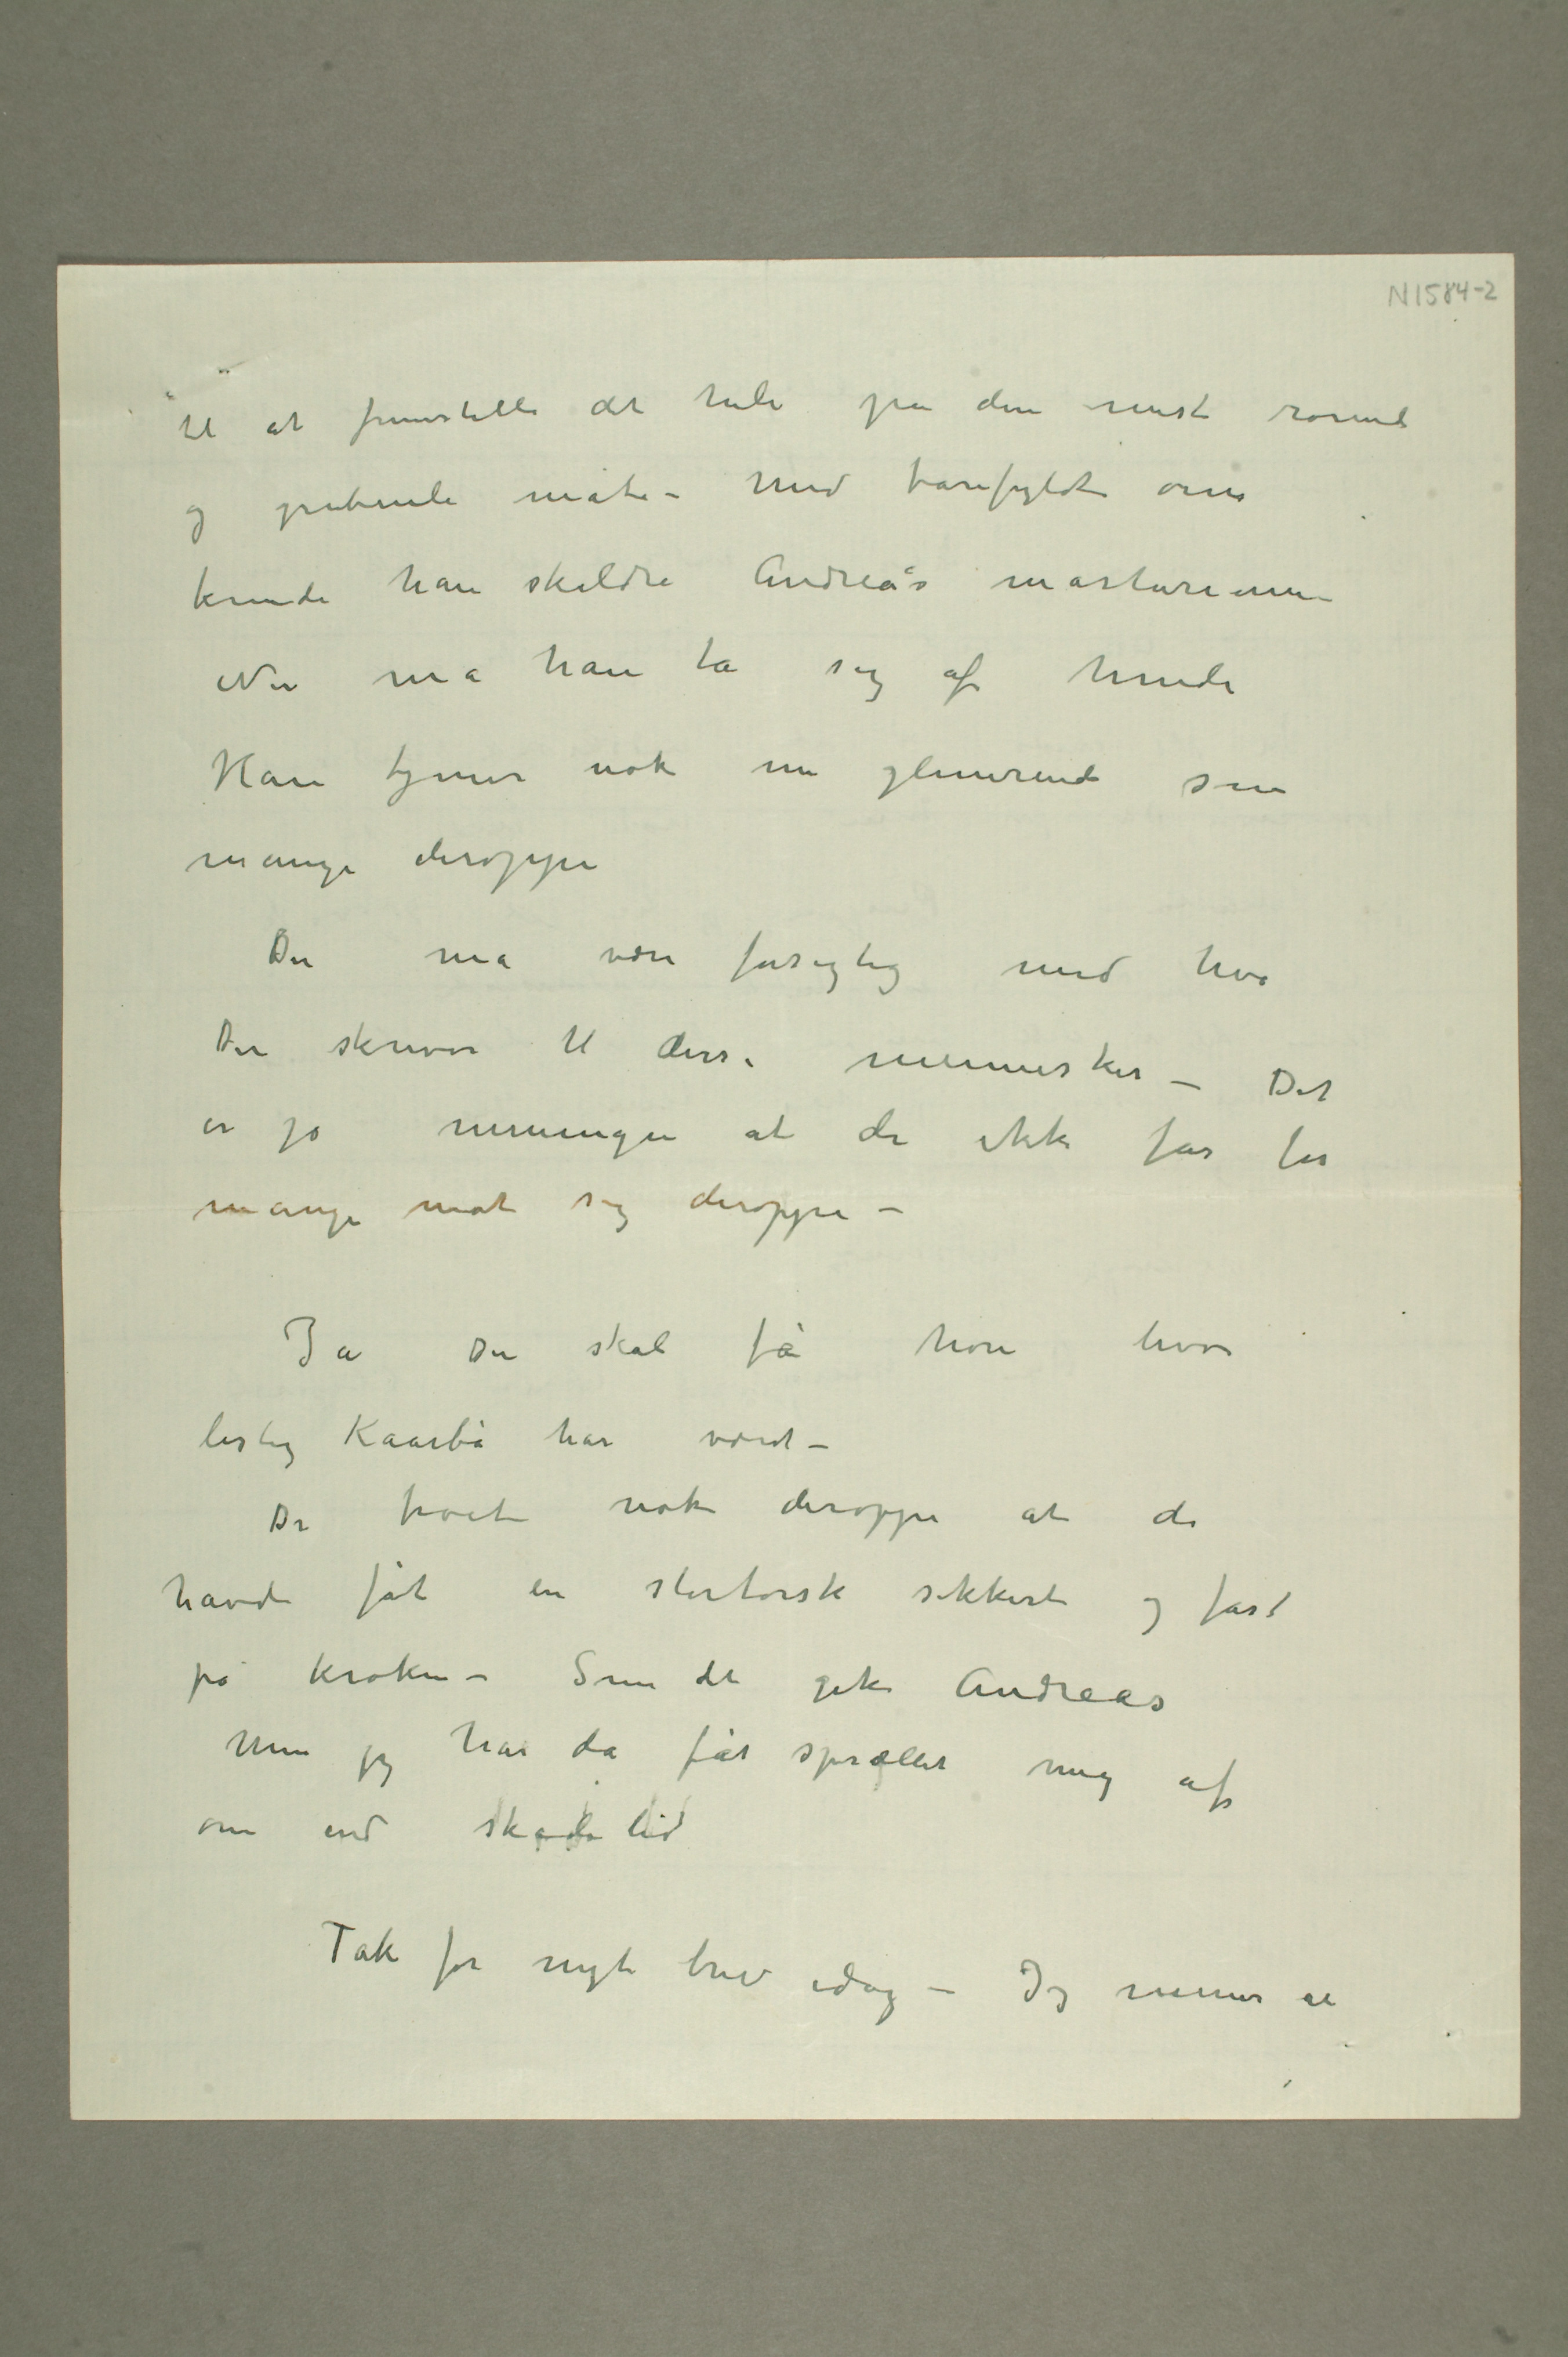 N1584-2
til at fremstille det hele på den mest rørende
og gribende måte – Med tårefyldte øine
kunde han skildre Andreas marturium –
Nu må han ta sig af hende
Han tjener nok nu glimrende som
mange deroppe
Du må være forsigtig med hva
Du skriver til disse mennesker – Det
er jo meningen at de ikke får for
mange mot sig deroppe –
Ja Du skal få høre hvor
listig Kaarbø har været –
De troet nok deroppe at de
havde fåt en stortorsk sikkert og fast
på kroken – Som det gik Andreas
Men jeg har da fåt sprællet mig af
om end skadelid
Tak for nyt brev idag – Jeg mener at